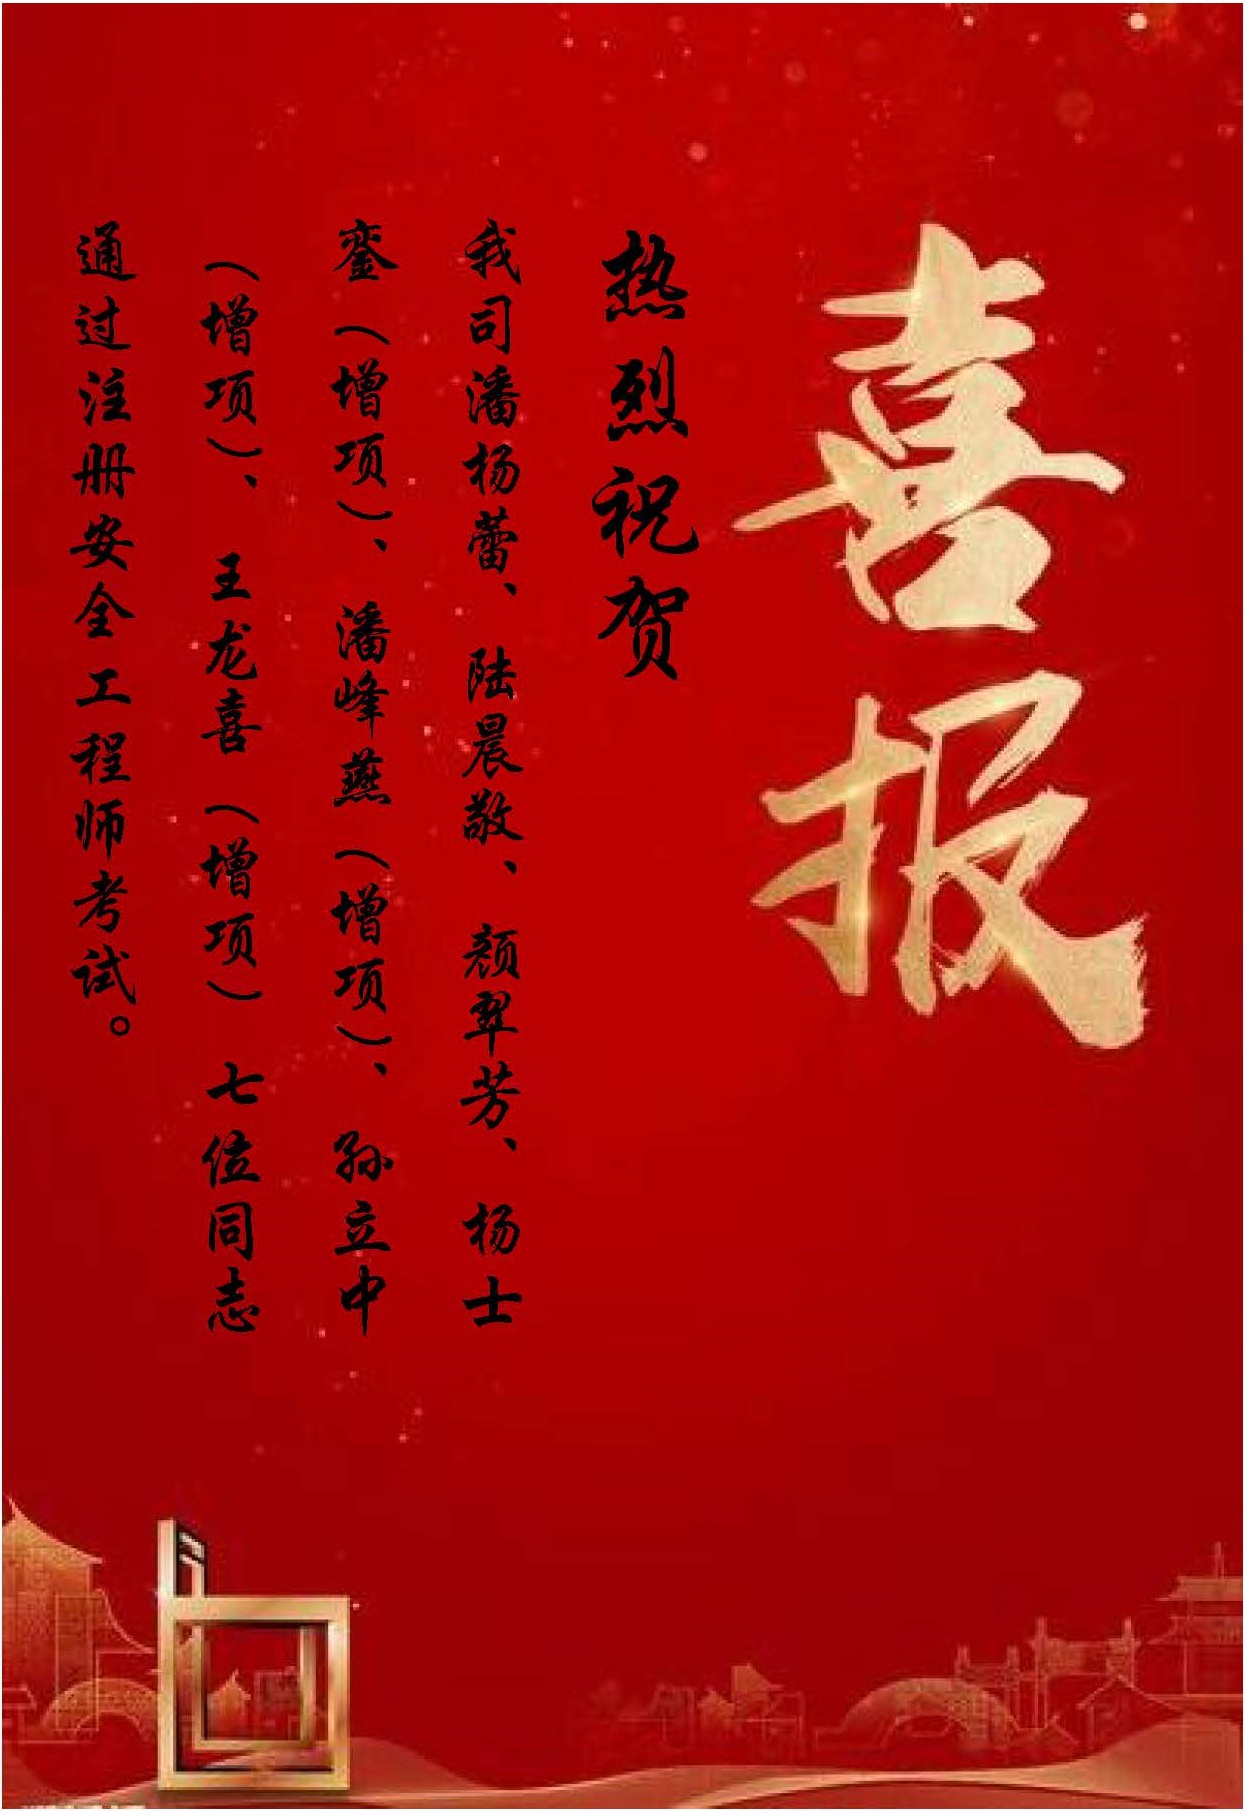 喜报
热烈祝贺
我司潘杨蕾、陆晨敬、颜翠芳、杨士
銮（增项）、潘峰燕（增项）、孙立中
（增项）、王龙喜（增项）七位同志
通过注册安全工程师考试。